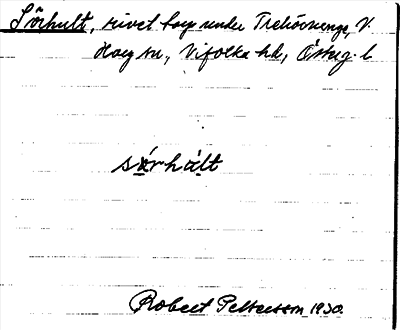 Sörhult, rivet torp under Trehörninge, V.
Harg sn., Vifolka hd, Österg. l.
sörhult
Robert Pettersson 1930.